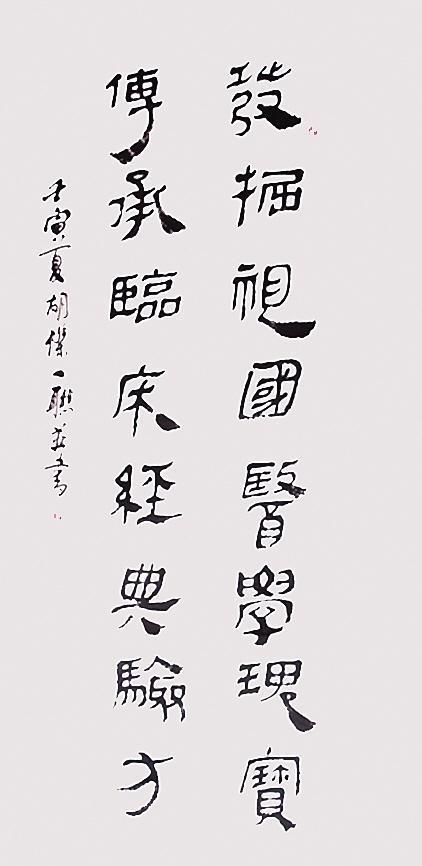 發掘祖國醫學瑰寶
傳承臨床經典驗方
壬寅夏胡傑一聯並書